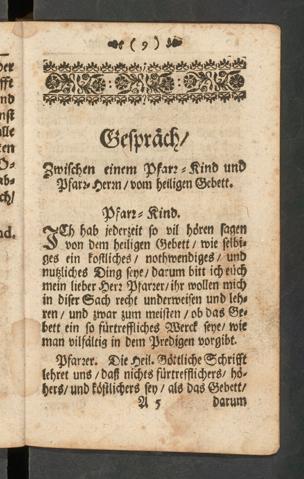 ( 9 )
Gespräch/
Zwischen einem Pfarr-Kind und
Pfarr-Herrn/ vom heiligen Gebett.
Pfarr-Kind.
ICh hab jederzeit so vil hören sagen
von dem heiligen Gebett/ wie selbi-
ges ein kostliches/ nothwendiges/ und
nutzliches Ding seye/ darum bitt ich euch
mein lieber Herr Pfarrer/ ihr wollen mich
in diser Sach recht underweisen und leh-
ren/ und zwar zum meisten/ ob das Ge-
bett ein so fürtreffliches Werck seye/ wie
man vilfältig in dem Predigen vorgibt.
Pfarrer. Die Heil. Göttliche Schrifft
lehret uns/ daß nichts fürtrefflichers/ hö-
hers/ und köstlichers sey/ als das Gebett/
A 5 darum